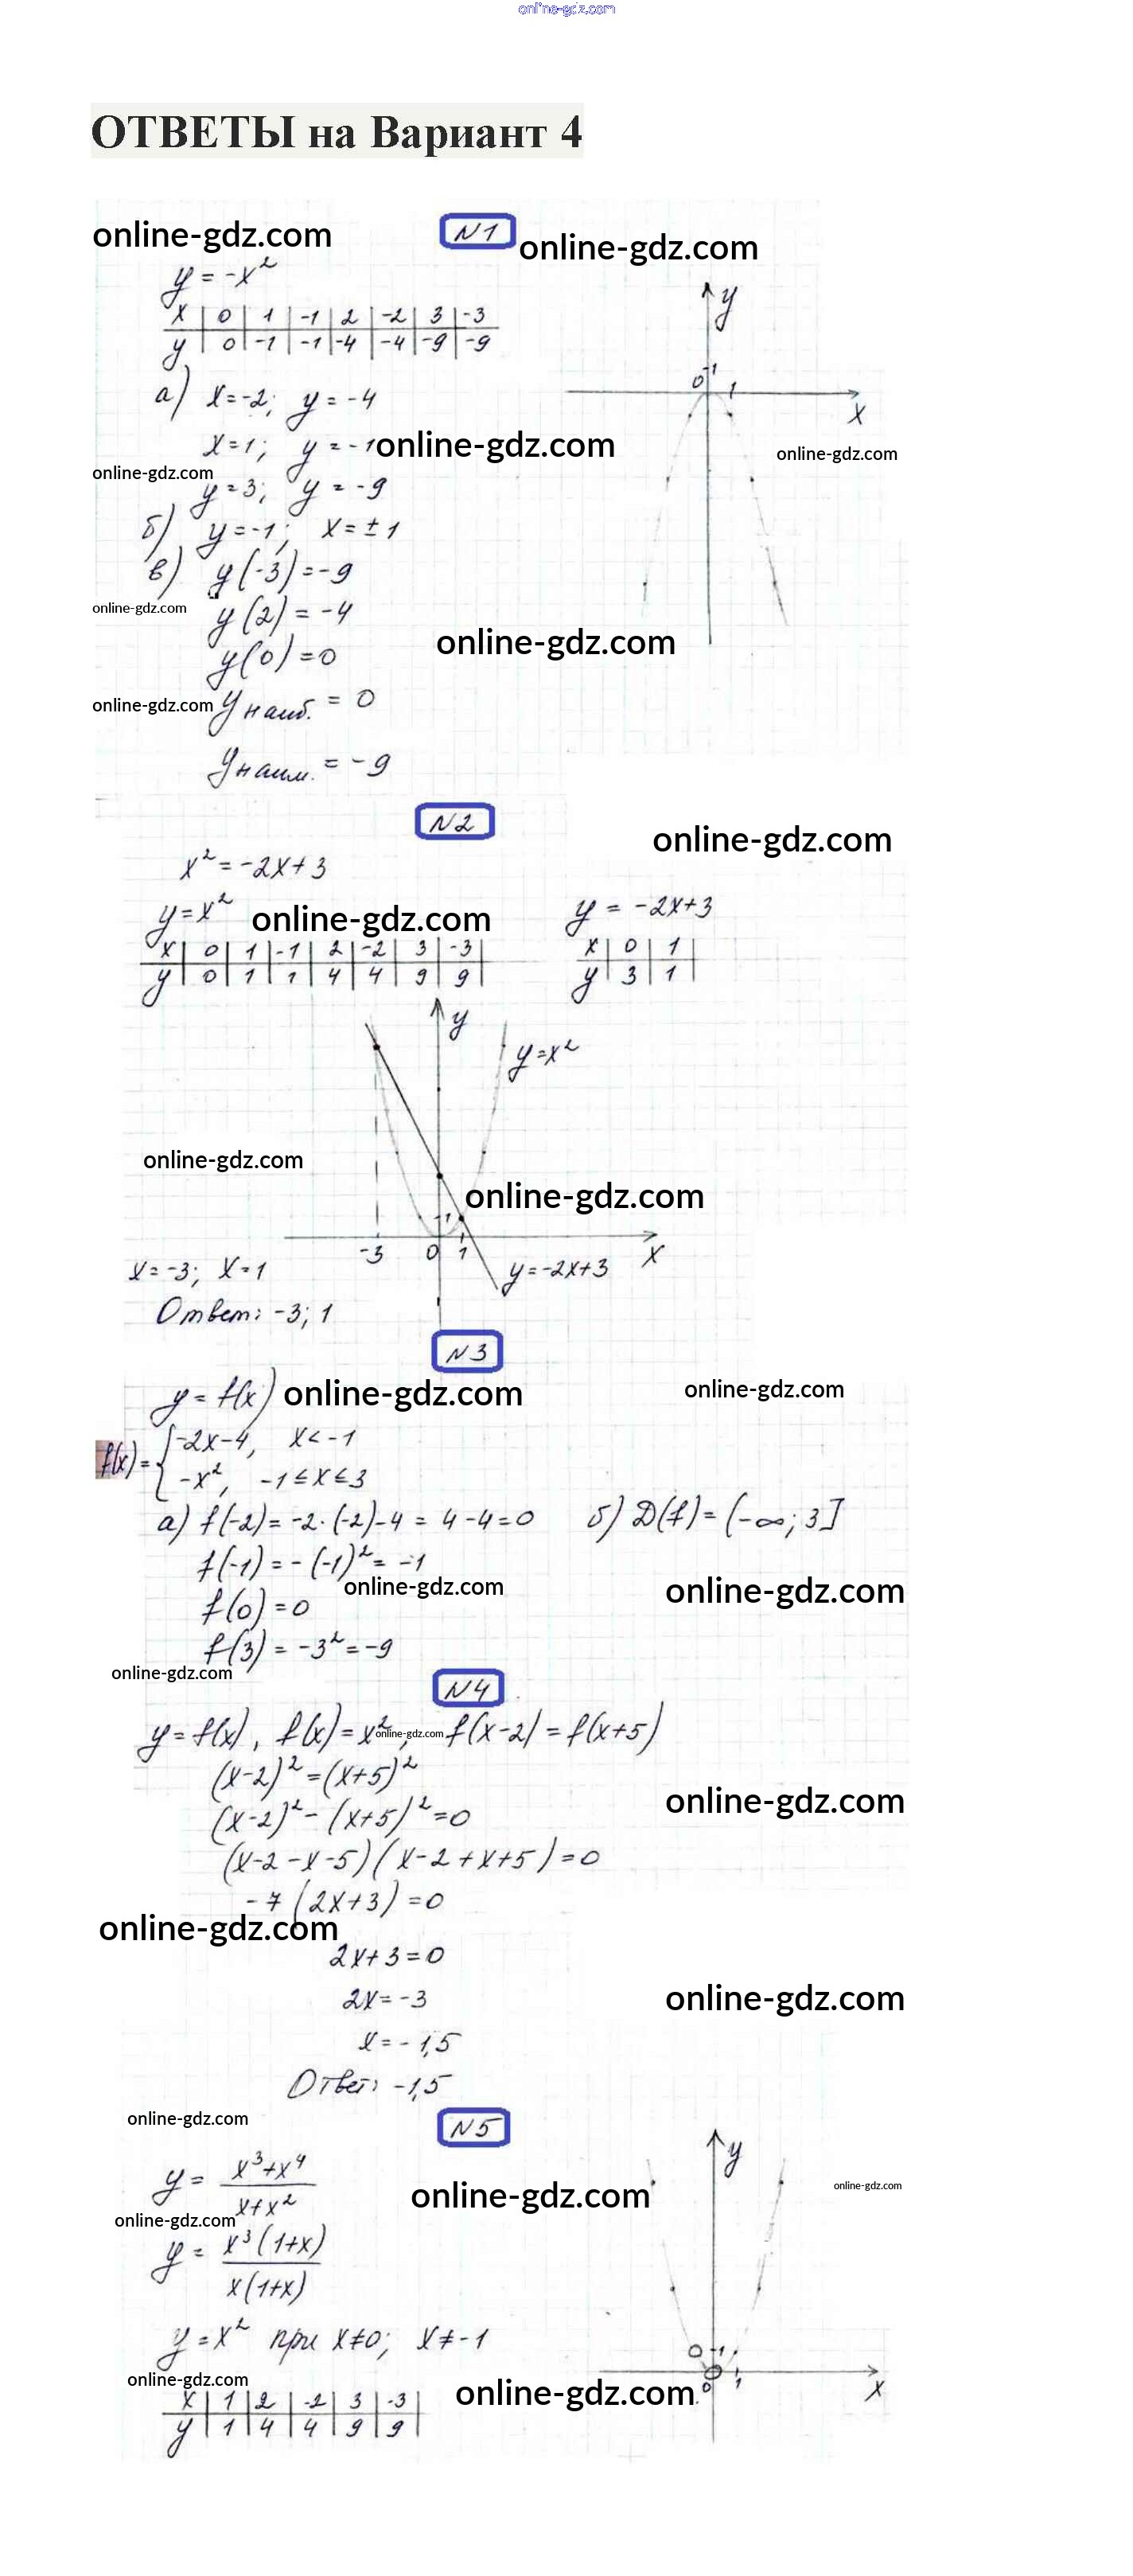 online-gdz.com
ОТВЕТЫ на Вариант 4
online-gdz.com
N1
online-gdz.com
y = -x²
x | 0 | 1 | -1 | 2 | -2 | 3 | -3
y | 0 | -1 | -1 | -4 | -4 | -9 | -9
y
0 1
1
x
а) x=-2; y = -4
x=1; y = -1
online-gdz.com
online-gdz.com
online-gdz.com
y=3; y = -9
б) y=-1; x = ±1
в) y(-3) = -9
online-gdz.com
y(2) = -4
online-gdz.com
y(0) = 0
online-gdz.com
yнаиб. = 0
yнаим. = -9
N2
online-gdz.com
x² = -2x+3
y=x²
online-gdz.com
y = -2x+3
x | 0 | 1 | -1 | 2 | -2 | 3 | -3 |
y | 0 | 1 | 1 | 4 | 4 | 9 | 9 |
x | 0 | 1 |
y | 3 | 1 |
y
y=x²
online-gdz.com
online-gdz.com
1
-3 0 1
x
y=-2x+3
x=-3; x=1
Ответ: -3; 1
N3
y = f(x)
online-gdz.com
online-gdz.com
f(x) = { -2x-4, x < -1
-x², -1 ≤ x ≤ 3
а) f(-2) = -2·(-2)-4 = 4-4=0
б) D(f) = (-∞; 3]
f(-1) = -(-1)² = -1
online-gdz.com
online-gdz.com
f(0) = 0
f(3) = -3² = -9
online-gdz.com
N4
y = f(x), f(x) = x², f(x-2) = f(x+5)
online-gdz.com
(x-2)² = (x+5)²
online-gdz.com
(x-2)² - (x+5)² = 0
(x-2-x-5)(x-2+x+5) = 0
-7(2x+3) = 0
online-gdz.com
2x+3=0
2x=-3
online-gdz.com
x = -1,5
Ответ: -1,5
online-gdz.com
N5
y = x³+x⁴
x+x²
online-gdz.com
online-gdz.com
online-gdz.com
y = x³(1+x)
x(1+x)
y
0 1
0 1
x
y = x² при x≠0; x≠-1
online-gdz.com
online-gdz.com
x | 1 | 2 | -2 | 3 | -3 |
y | 1 | 4 | 4 | 9 | 9 |